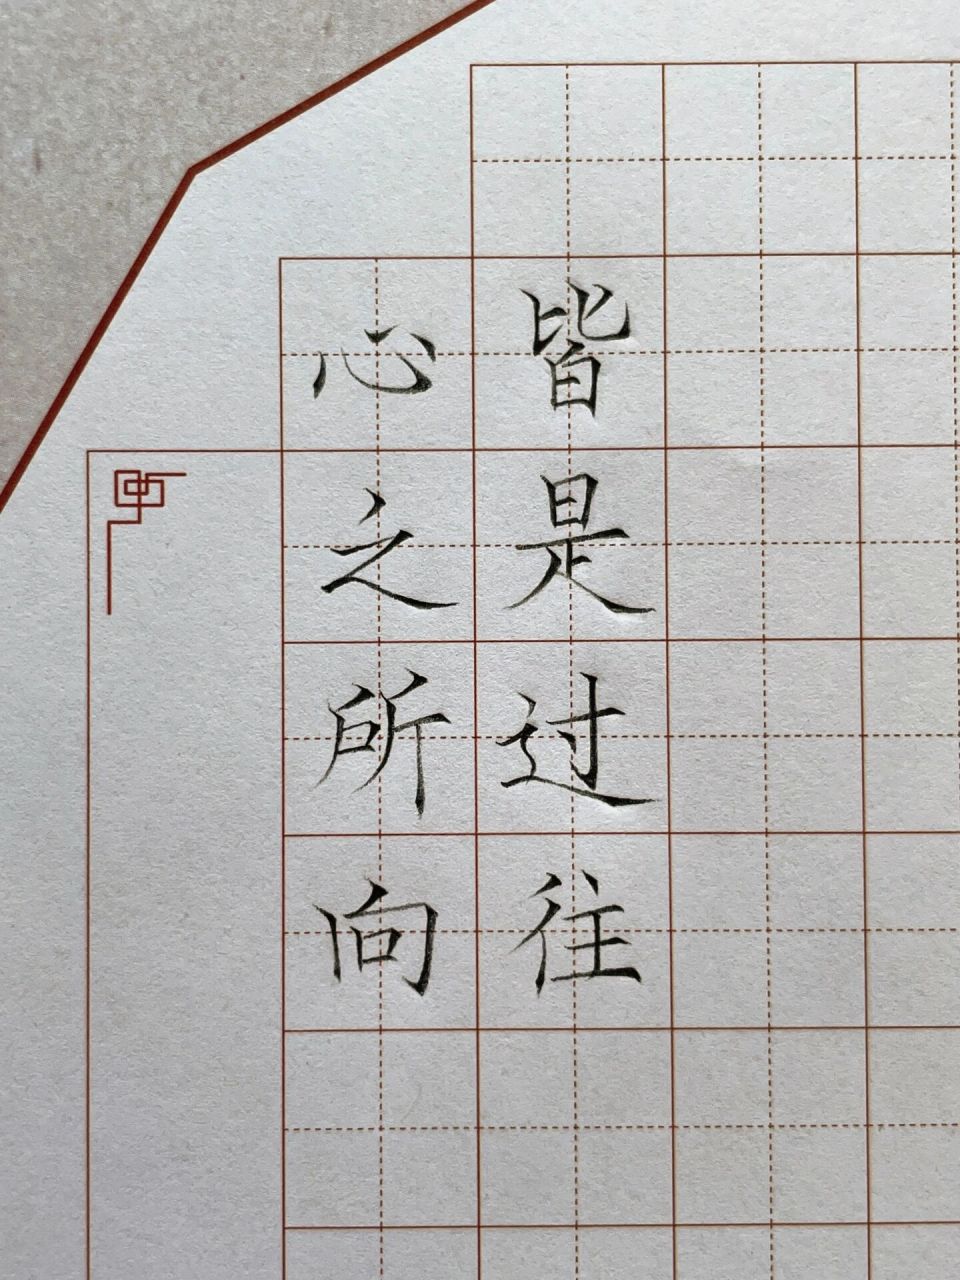 心之所向
皆是过往